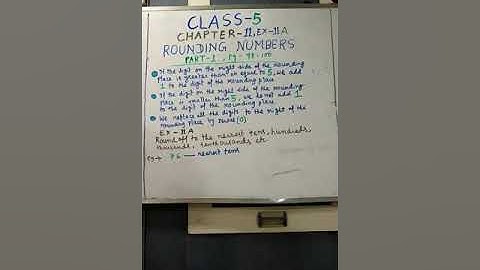 CLASS-5
CHAPTER-11, EX-11A
ROUNDING NUMBERS
PART-1, Pg-98-100
If the digit on the right side of the rounding
place is greater than or equal to 5, we add
1 to the digit of the rounding place
If the digit on the right side of the rounding
place is smaller than 5, we do not add 1
to the digit of the rounding place
We replace all the digits to the right of the
rounding place by zeroes (0)
EX-11A
Round off to the nearest tens, hundreds
thousands, tenthousands etc
76 — nearest tens